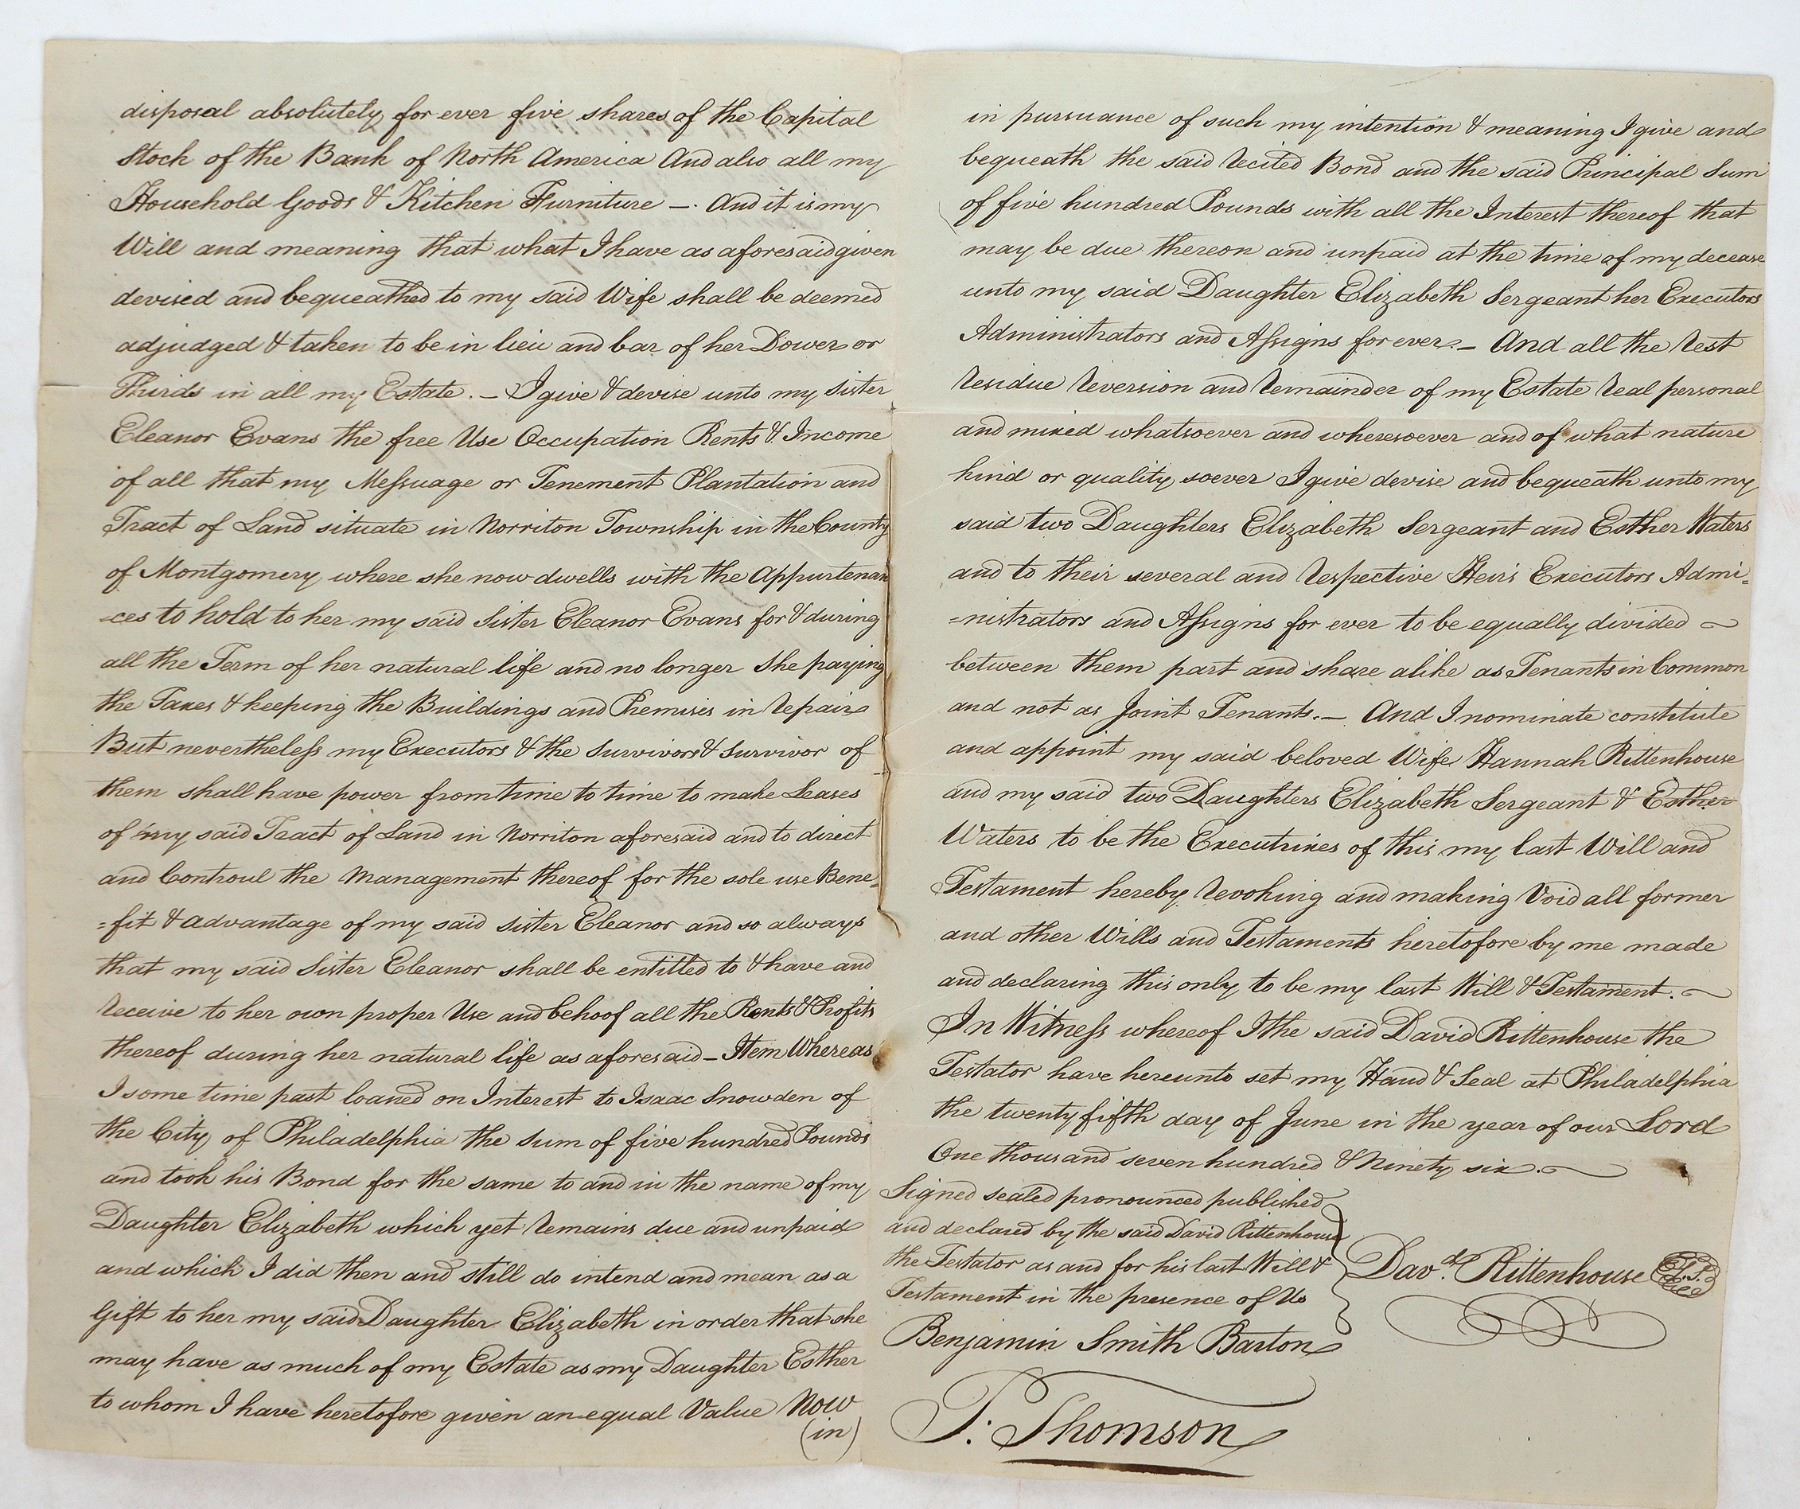 disposal absolutely for ever five shares of the Capital
Stock of the Bank of North America And also all my
Household Goods & Kitchen Furniture —. And it is my
Will and meaning that what I have as aforesaid given
devised and bequeathed to my said Wife shall be deemed
adjudged & taken to be in lieu and bar of her Dower or
Thirds in all my Estate. — I give & devise unto my Sister
Eleanor Evans the free Use Occupation Rents & Income
of all that my Messuage or Tenement Plantation and
Tract of Land situate in Norriton Township in the County
of Montgomery where she now dwells with the Appurtenan
=ces to hold to her my said Sister Eleanor Evans for & during
all the Term of her natural life and no longer She paying
the Taxes & keeping the Buildings and Premises in repair
But nevertheless my Executors & the Survivors & Survivor of
them shall have power from time to time to make Leases
of my said Tract of Land in Norriton aforesaid and to direct
and Controul the Management thereof for the sole use Bene=
=fit & advantage of my said sister Eleanor and so always
that my said Sister Eleanor shall be entitled to & have and
receive to her own proper Use and behoof all the Rents & Profits
thereof during her natural life as aforesaid — Item Whereas
I some time past loaned on Interest to Isaac Snowden of
the City of Philadelphia the Sum of five hundred Pounds
and took his Bond for the same to and in the name of my
Daughter Elizabeth which yet remains due and unpaid
and which I did then and still do intend and mean as a
Gift to her my said Daughter Elizabeth in order that she
may have as much of my Estate as my Daughter Esther
to whom I have heretofore given an equal Value Now
(in)
in pursuance of such my intention & meaning I give and
bequeath the said recited Bond and the said Principal Sum
of five hundred Pounds with all the Interest thereof that
may be due thereon and unpaid at the time of my decease
unto my said Daughter Elizabeth Sergeant her Executors
Administrators and Assigns for ever. — And all the rest
residue reversion and remainder of my Estate real personal
and mixed whatsoever and wheresoever and of what nature
kind or quality soever I give devise and bequeath unto my
said two Daughters Elizabeth Sergeant and Esther Waters
and to their several and respective Heirs Executors Admi=
=nistrators and Assigns for ever to be equally divided
between them part and share alike as Tenants in Common
and not as Joint Tenants. — And I nominate constitute
and appoint my said beloved Wife Hannah Rittenhouse
and my said two Daughters Elizabeth Sergeant & Esther
Waters to be the Executrixes of this my last Will and
Testament hereby revoking and making Void all former
and other Wills and Testaments heretofore by me made
and declaring this only to be my last Will & Testament. —
In Witness whereof I the said David Rittenhouse the
Testator have hereunto set my Hand & Seal at Philadelphia
the twenty fifth day of June in the year of our Lord
One thousand seven hundred & Ninety six. —
Signed sealed pronounced published
and declared by the said David Rittenhouse
the Testator as and for his last Will &
Testament in the presence of Us
Benjamin Smith Barton
P. Thomson
Dav.d Rittenhouse L.S.